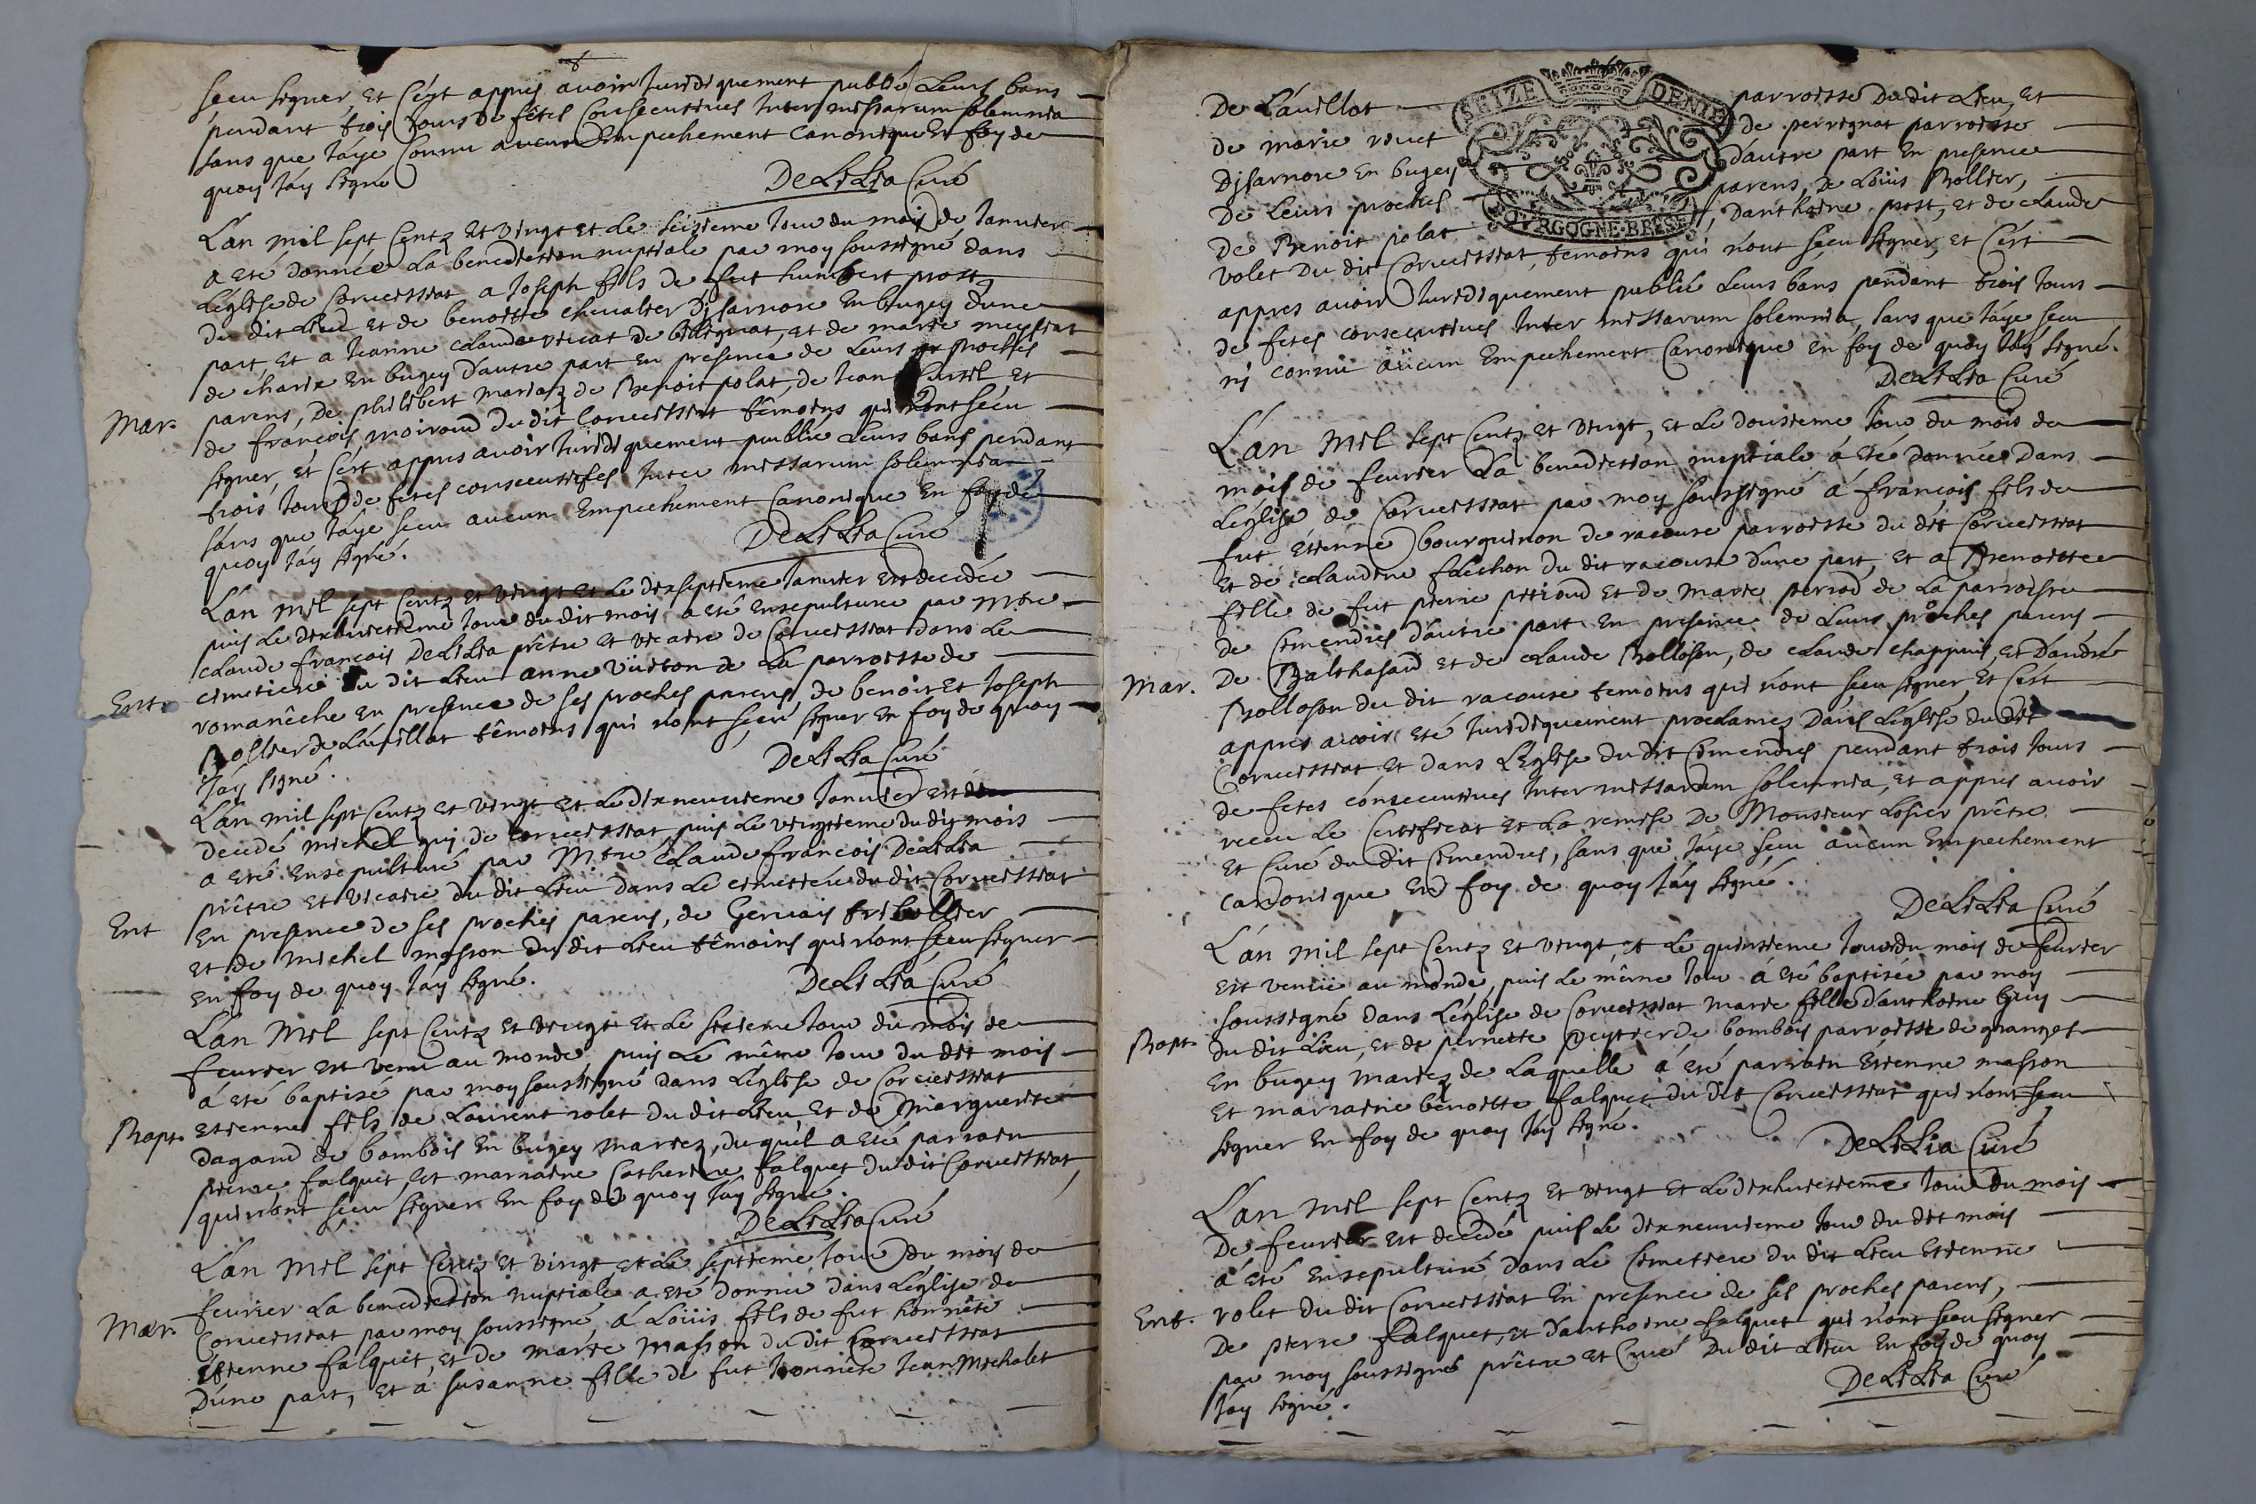 sceu signer, et c'ést appres avoir Juridiquement publié Leurs bans
pendant trois Jours de fêtes Consecutives Inter missarum solemnia
sans que J'áye Connu aucun Empechement Canonique En foy de
quoy J'áy signé
DeLiLia Curé
L'an mil sept Centz et vingt et Le seizieme Jour du mois de Janvier
a eté donnée La benediction nuptiale par moy soussigné dans
L'église de Corveissiat a Joseph fils de fut humbert prost
du dit Lieu et de benoitte chevalier D'isarnore En bugey d'une
part, et a Jeanne claude vicat de bolegnat, et de marie meyssiat
de charix En bugey d'autre part En presence de Leurs proches
Mar.
parens, de philibert mariaz de Benoit polat, de Jean et
de françois moiroud du dit Corveissiat têmoins qui n'ont sceu
signer, et c'ést appres avoir Juridiquement publié Leurs bans pendant
trois Jours de fetes consecutifes Inter missarum solemnia
sáns que J'áye sceu aucun Empechement Canonique En foy de
quoy J'áy signé.
DeLiLia Curé
L'án mil sept Centz et vingt et Le dixseptieme Janvier est decedée
puis Le dixhuictieme Jour du dit mois a eté Ensepulturée par mre
claude francois DeLiLia prêtre et vicaire de Corveissiat dans Le
Ent.
cimetiere du dit Lieu anne vuiton de La parroisse de
romanêche En presence de ses proches parens, de benoit et Joseph
Bollier de L'avillat têmoins qui n'ont sceu signer En foy de quoy
J'áy signé.
DeLiLia Curé
L'án mil sept Centz et vingt et Le dixneuvieme Janvier est
decedé michel guy de Corveissiat puis Le vingtieme du dit mois
a eté Ensepulturé par Mtre Claude francois DeLiLia
prêtre et vicaire du dit Lieu dans Le cimetiere du dit Corveissiat
Ent
En presence de ses proches parens, de Gervais tribollier
et de michel masson du dit Lieu têmoins qui n'ont sceu signer
En foy de quoy J'áy signé.
DeLiLia Curé
L'án Mil sept Centz et vingt et Le sixieme Jour du mois de
fevrier est venu au monde puis Le même Jour du dit mois
á eté baptisé par moy soussigné dans L'église de Corveissiat
Bapt.
etienne fils de Laurent volet du dit Lieu et de Marguerite
dagaud de bombois En bugey mariez, du quel a eté parrain
pierre falquet, et marraine Catherine falquet du dit Corveissiat,
qui n'ont sceu signer En foy de quoy J'áy signé.
DeLiLia Curé
L'án Mil sept Centz et vingt et Le septieme Jour du mois de
fevrier La benediction nuptiale a eté donnée dans L'église de
Mar.
Corveissiat par moy soussigné á Loüis fils de fut honnête
etienne falquet, et de marie masson du dit Corveissiat
D'une part, et á susanne fille de fut honnête Jean Michalet
SEIZE DENIE
BOURGOGNE-BRESSE
De L'ávillat parroisse Du dit Lieu, et
de marie vuet de perregnat parroisse
D'isarnore En bugey d'autre part En presence
De Leurs proches parens, de Loüis Bollier,
De Benoit polat, D'anthoine prost, et de claude
volet Du dit Corveissiat, temoins qui n'ont sceu signer, et c'ést
appres avoir Juridiquement publié Leurs bans pendant trois Jours
de fetes consecutives Inter missarum solemnia, sans que J'áye sceu
ny connu aücun Empechement Canonique En foy de quoy J'áy signé.
DeLiLia Curé
L'án Mil sept Centz et vingt, et Le douzieme Jour du mois du
mois de fevrier La benediction nuptiale á eté donnée Dans
L'église de Corveissiat par moy soussigné á françois fils de
fut étienne bourguinon de racouse parroisse du dit Corveissiat
et de claudine fléchon du dit racouse d'une part, et a Benoitte
fille de fut pierre periaud et de marie perrod de La parroisse
de Cimendres d'áutre part En presence de Leurs prôches parens
Mar.
De Balthasard et de claude Bolloson, de claude chappuis, et D'andré
Bolloson du dit racouse temoins qui n'ont sceu signer, et C'ést
appres avoir eté Juridiquement proclamez Dans L'église du dit
Corveissiat et dans L'Eglise du dit Cimendres pendant trois Jours
de fetes consecutives Inter missarum solemnia, et appres avoir
receu Le Certificat et La remise De Monsieur Losier prêtre
et Curé du dit Cimendres, sans que J'áye sceu aücun Empechement
canonique En foy de quoy J'áy signé.
DeLiLia Curé
L'án mil sept Centz et vingt, et Le quinzieme Jour du mois de fevrier
est venüe au monde, puis Le même Jour á eté baptisée par moy
soussigné dans L'église de Corveissiat marie fille d'anthoine guy
Bapt.
du dit Lieu, et de pernette peytier de bombois parroisse de granges
En bugey mariez de Laquelle á eté parrain étienne masson
et marraine benoitte falquet du dit Corveissiat qui n'ont sceu
signer En foy de quoy J'áy signé.
DeLiLia Curé
L'án Mil sept Centz et vingt et Le dixhuictieme Jour du mois
De fevrier est decedé puis Le dixneuvieme Jour du dit mois
á eté Ensepulturé dans Le Cimetiere du dit Lieu etienne
Ent.
volet du dit Corveissiat En presence de ses proches parens,
De pierre falquet, et d'anthoine falquet qui n'ont sceu signer
par moy soussigné prêtre et Curé Du dit Lieu En foy de quoy
J'áy signé.
DeLiLia Curé